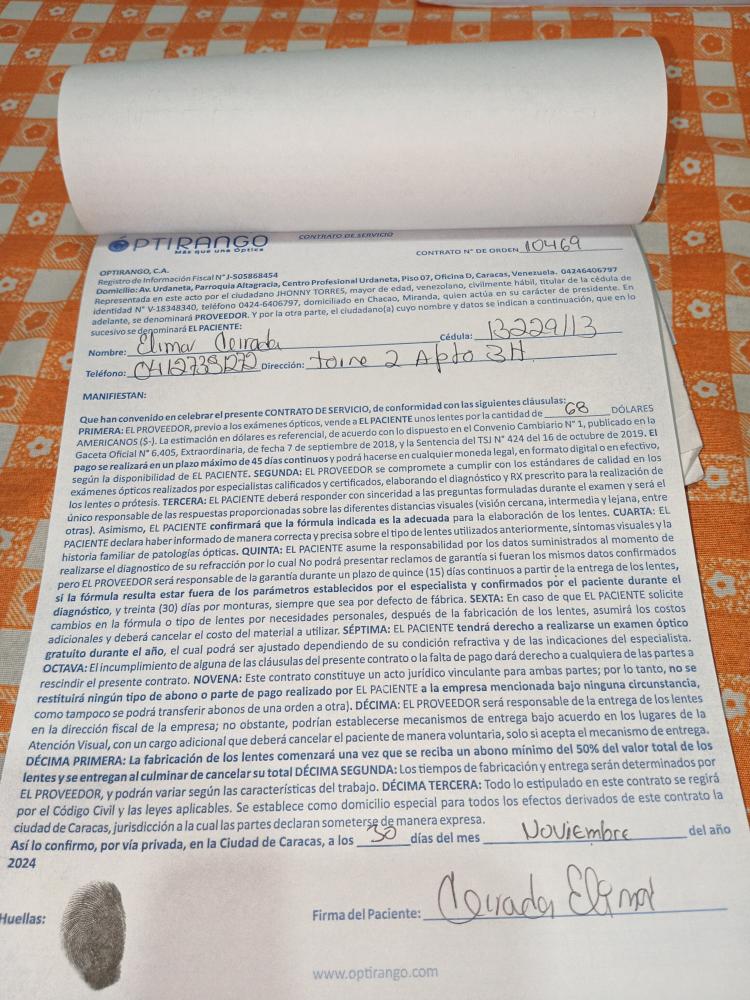 ÓPTIRANGO
Más que una Óptica
CONTRATO DE SERVICIO
CONTRATO N° DE ORDEN 10469
OPTIRANGO, C.A.
Registro de Información Fiscal N° J-505868454
Domicilio: Av. Urdaneta, Parroquia Altagracia, Centro Profesional Urdaneta, Piso 07, Oficina D, Caracas, Venezuela. 04246406797
Representada en este acto por el ciudadano JHONNY TORRES, mayor de edad, venezolano, civilmente hábil, titular de la cédula de
identidad N° V-18348340, teléfono 0424-6406797, domiciliado en Chacao, Miranda, quien actúa en su carácter de presidente. En
adelante, se denominará PROVEEDOR. Y por la otra parte, el ciudadano(a) cuyo nombre y datos se indican a continuación, que en lo
sucesivo se denominará EL PACIENTE:
Nombre: Elimar Cérrada Cédula: 13229113
Teléfono: Dirección: Torre 2 Apto 3H
MANIFIESTAN:
Que han convenido en celebrar el presente CONTRATO DE SERVICIO, de conformidad con las siguientes cláusulas:
PRIMERA: EL PROVEEDOR, previo a los exámenes ópticos, vende a EL PACIENTE unos lentes por la cantidad de 68 DÓLARES
AMERICANOS (S-). La estimación en dólares es referencial, de acuerdo con lo dispuesto en el Convenio Cambiario N° 1, publicado en la
Gaceta Oficial N° 6.405, Extraordinaria, de fecha 7 de septiembre de 2018, y la Sentencia del TSJ N° 424 del 16 de octubre de 2019. El
pago se realizará en un plazo máximo de 45 días continuos y podrá hacerse en cualquier moneda legal, en formato digital o en efectivo,
según la disponibilidad de EL PACIENTE. SEGUNDA: EL PROVEEDOR se compromete a cumplir con los estándares de calidad en los
exámenes ópticos realizados por especialistas calificados y certificados, elaborando el diagnóstico y RX prescrito para la realización de
los lentes o prótesis. TERCERA: EL PACIENTE deberá responder con sinceridad a las preguntas formuladas durante el examen y será el
único responsable de las respuestas proporcionadas sobre las diferentes distancias visuales (visión cercana, intermedia y lejana, entre
otras). Asimismo, EL PACIENTE confirmará que la fórmula indicada es la adecuada para la elaboración de los lentes. CUARTA: EL
PACIENTE declara haber informado de manera correcta y precisa sobre el tipo de lentes utilizados anteriormente, síntomas visuales y la
historia familiar de patologías ópticas. QUINTA: EL PACIENTE asume la responsabilidad por los datos suministrados al momento de
realizarse el diagnostico de su refracción por lo cual No podrá presentar reclamos de garantía si fueran los mismos datos confirmados
pero EL PROVEEDOR será responsable de la garantía durante un plazo de quince (15) días continuos a partir de la entrega de los lentes,
si la fórmula resulta estar fuera de los parámetros establecidos por el especialista y confirmados por el paciente durante el
diagnóstico, y treinta (30) días por monturas, siempre que sea por defecto de fábrica. SEXTA: En caso de que EL PACIENTE solicite
cambios en la fórmula o tipo de lentes por necesidades personales, después de la fabricación de los lentes, asumirá los costos
adicionales y deberá cancelar el costo del material a utilizar. SÉPTIMA: EL PACIENTE tendrá derecho a realizarse un examen óptico
gratuito durante el año, el cual podrá ser ajustado dependiendo de su condición refractiva y de las indicaciones del especialista.
OCTAVA: El incumplimiento de alguna de las cláusulas del presente contrato o la falta de pago dará derecho a cualquiera de las partes a
rescindir el presente contrato. NOVENA: Este contrato constituye un acto jurídico vinculante para ambas partes; por lo tanto, no se
restituirá ningún tipo de abono o parte de pago realizado por EL PACIENTE a la empresa mencionada bajo ninguna circunstancia,
como tampoco se podrá transferir abonos de una orden a otra). DÉCIMA: EL PROVEEDOR será responsable de la entrega de los lentes
en la dirección fiscal de la empresa; no obstante, podrían establecerse mecanismos de entrega bajo acuerdo en los lugares de la
Atención Visual, con un cargo adicional que deberá cancelar el paciente de manera voluntaria, solo si acepta el mecanismo de entrega.
DÉCIMA PRIMERA: La fabricación de los lentes comenzará una vez que se reciba un abono mínimo del 50% del valor total de los
lentes y se entregan al culminar de cancelar su total DÉCIMA SEGUNDA: Los tiempos de fabricación y entrega serán determinados por
EL PROVEEDOR, y podrán variar según las características del trabajo. DÉCIMA TERCERA: Todo lo estipulado en este contrato se regirá
por el Código Civil y las leyes aplicables. Se establece como domicilio especial para todos los efectos derivados de este contrato la
ciudad de Caracas, jurisdicción a la cual las partes declaran someterse de manera expresa.
Así lo confirmo, por vía privada, en la Ciudad de Caracas, a los 30 días del mes Noviembre del año
2024
Huellas: Firma del Paciente: Cerrada Elimar
www.optirango.com